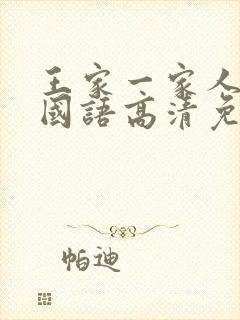 王家一家人
國語高清免
帕迪